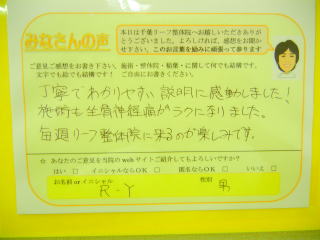 みなさんの声
本日は千葉リーフ整体院へお越しいただきありが
とうございました。よろしければ、感想をお聞か
せ下さい。このお言葉を励みに頑張って参ります
ご意見ご感想をお書き下さい。施術・整体院・結果・に関して何でも結構です。
文字でも絵でも結構です！ ご自由にお書き下さい。
丁寧でわかりやすい説明に感動しました！
施術も坐骨神経痛がラクに至りました。
毎週リーフ整体院に来るのが楽しみです。
☆ あなたのご意見を当院のwebサイトご紹介してもよろしいですか？
はい □ イニシャルならOK □ 匿名ならOK □ いいえ □
お名前 or イニシャル 性別
R.Y 男